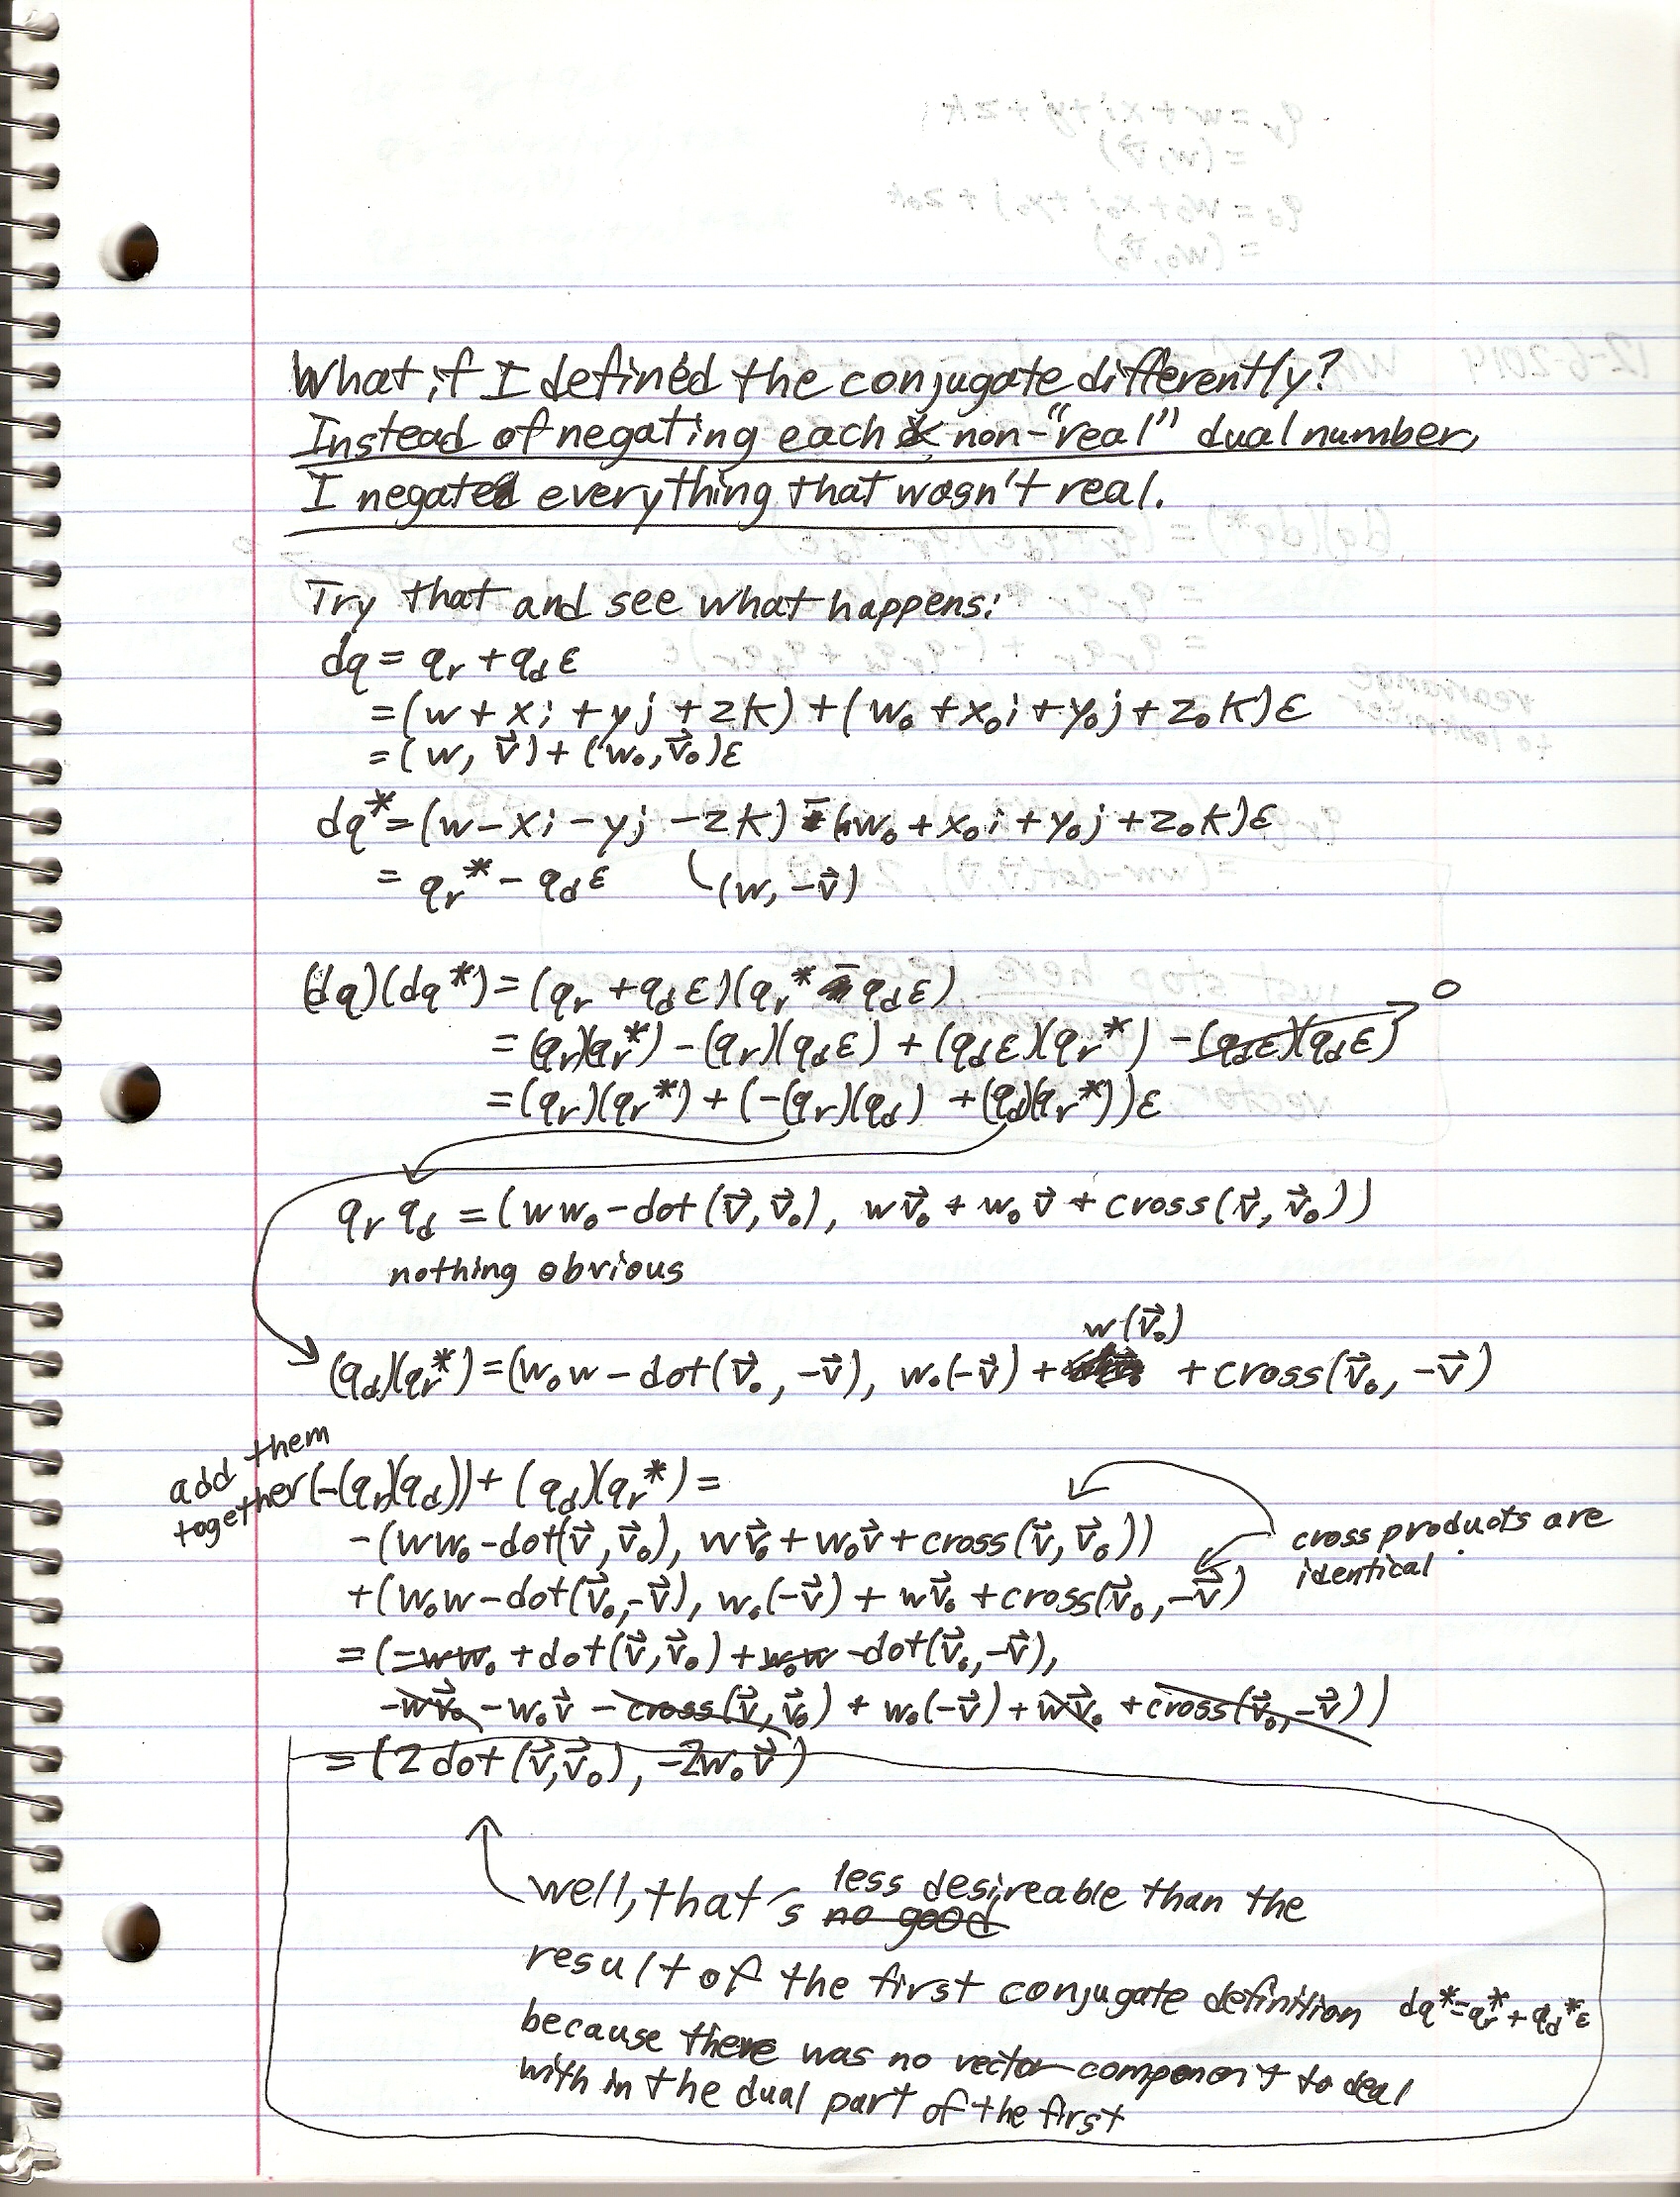 What if I defined the conjugate differently?
Instead of negating each non-"real" dual number,
I negated everything that wasn't real.
Try that and see what happens:
dq = qᵣ + q_d ε
= (w + xi + yj + zk) + (w₀ + x₀i + y₀j + z₀k)ε
= (w, v⃗) + (w₀, v⃗₀)ε
dq* = (w - xi - yj - zk) - (w₀ + x₀i + y₀j + z₀k)ε
= qᵣ* - q_d ε (w, -v⃗)
(dq)(dq*) = (qᵣ + q_d ε)(qᵣ* - q_d ε)
= (qᵣ)(qᵣ*) - (qᵣ)(q_d ε) + (q_d ε)(qᵣ*) - (q_d ε)(q_d ε) 0
= (qᵣ)(qᵣ*) + (-(qᵣ)(q_d) + (q_d)(qᵣ*))ε
qᵣ q_d = (ww₀ - dot(v⃗, v⃗₀), wv⃗₀ + w₀v⃗ + cross(v⃗, v⃗₀))
nothing obvious
(q_d)(qᵣ*) = (w₀w - dot(v⃗₀, -v⃗), w₀(-v⃗) + w(v⃗₀) + cross(v⃗₀, -v⃗)
add them
together (-(qᵣ)(q_d)) + (q_d)(qᵣ*) =
-(ww₀ - dot(v⃗, v⃗₀), wv⃗₀ + w₀v⃗ + cross(v⃗, v⃗₀))
+(w₀w - dot(v⃗₀, -v⃗), w₀(-v⃗) + wv⃗₀ + cross(v⃗₀, -v⃗)
cross products are
identical
= (-ww₀ + dot(v⃗, v⃗₀) + w₀w - dot(v⃗₀, -v⃗),
-wv⃗₀ - w₀v⃗ - cross(v⃗, v⃗₀) + w₀(-v⃗) + wv⃗₀ + cross(v⃗₀, -v⃗))
= (2 dot(v⃗, v⃗₀), -2w₀v⃗)
well, that's no good less desireable than the
result of the first conjugate definition dq* = qᵣ* + q_d* ε
because there was no vector component to deal
with in the dual part of the first